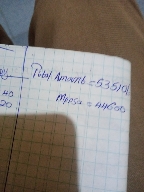 Total Amount = 535101
Mensa = 44600
40
20